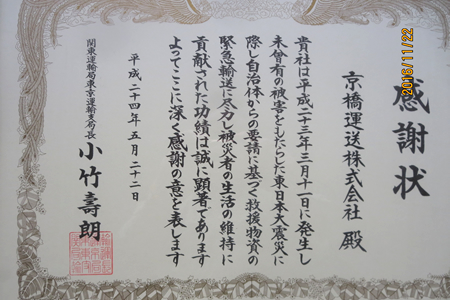 感謝状
京橋運送株式会社 殿
貴社は平成二十三年三月十一日に発生し
未曾有の被害をもたらした東日本大震災に
際し自治体からの要請に基づく救援物資の
緊急輸送に尽力し被災者の生活の維持に
貢献された功績は誠に顕著であります
よってここに深く感謝の意を表します
平成二十四年五月二十二日
関東運輸局東京運輸支局長 小竹壽朗
2016/11/22